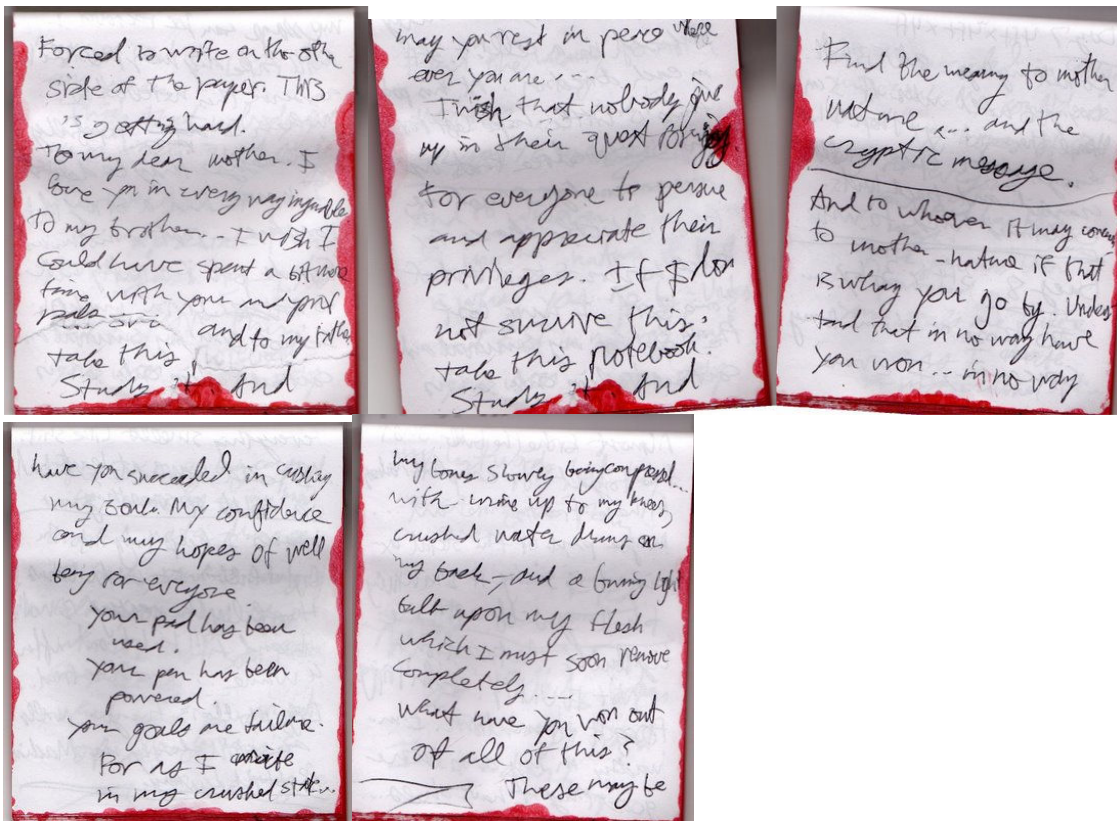 Forced to write on the other
side of the paper. This
is getting hard.
To my dear mother. I
love you in every way imaginable
To my brother... I wish I
could have spent a bit more
time with you and your
and to my father
take this
Study it And
may you rest in peace where
ever you are....
I wish that nobody give
up in their quest for
For everyone to persue
and appreciate their
privileges. If I do
not survive this,
take this notebook.
Study it And
Find the meaning to mother
nature .... and the
cryptic message.
And to whoever it may concern
to mother-nature if that
is what you go by. Unders
tand that in no way have
you won... in no way
have you succeeded in crushing
my soul. My confidence
and my hopes of well
being for everyone
your pad has been
used.
your pen has been
powered
your goals are failure.
For as I write
in my crushed state...
my bones slowly being compressed...
with urine up to my knees,
crushed water drums on
my back, and a burning light
built upon my flesh
which I must soon remove
completely....
What have you won out
of all of this?
These may be